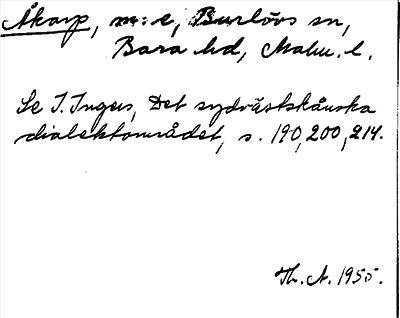 Åkarp, m: e, Burlövs sn,
Bara hd, Malm. l.
Se I. Ingers, Det sydvästskånska
dialektområdet, s. 190, 200, 214.
Th. A. 1955.